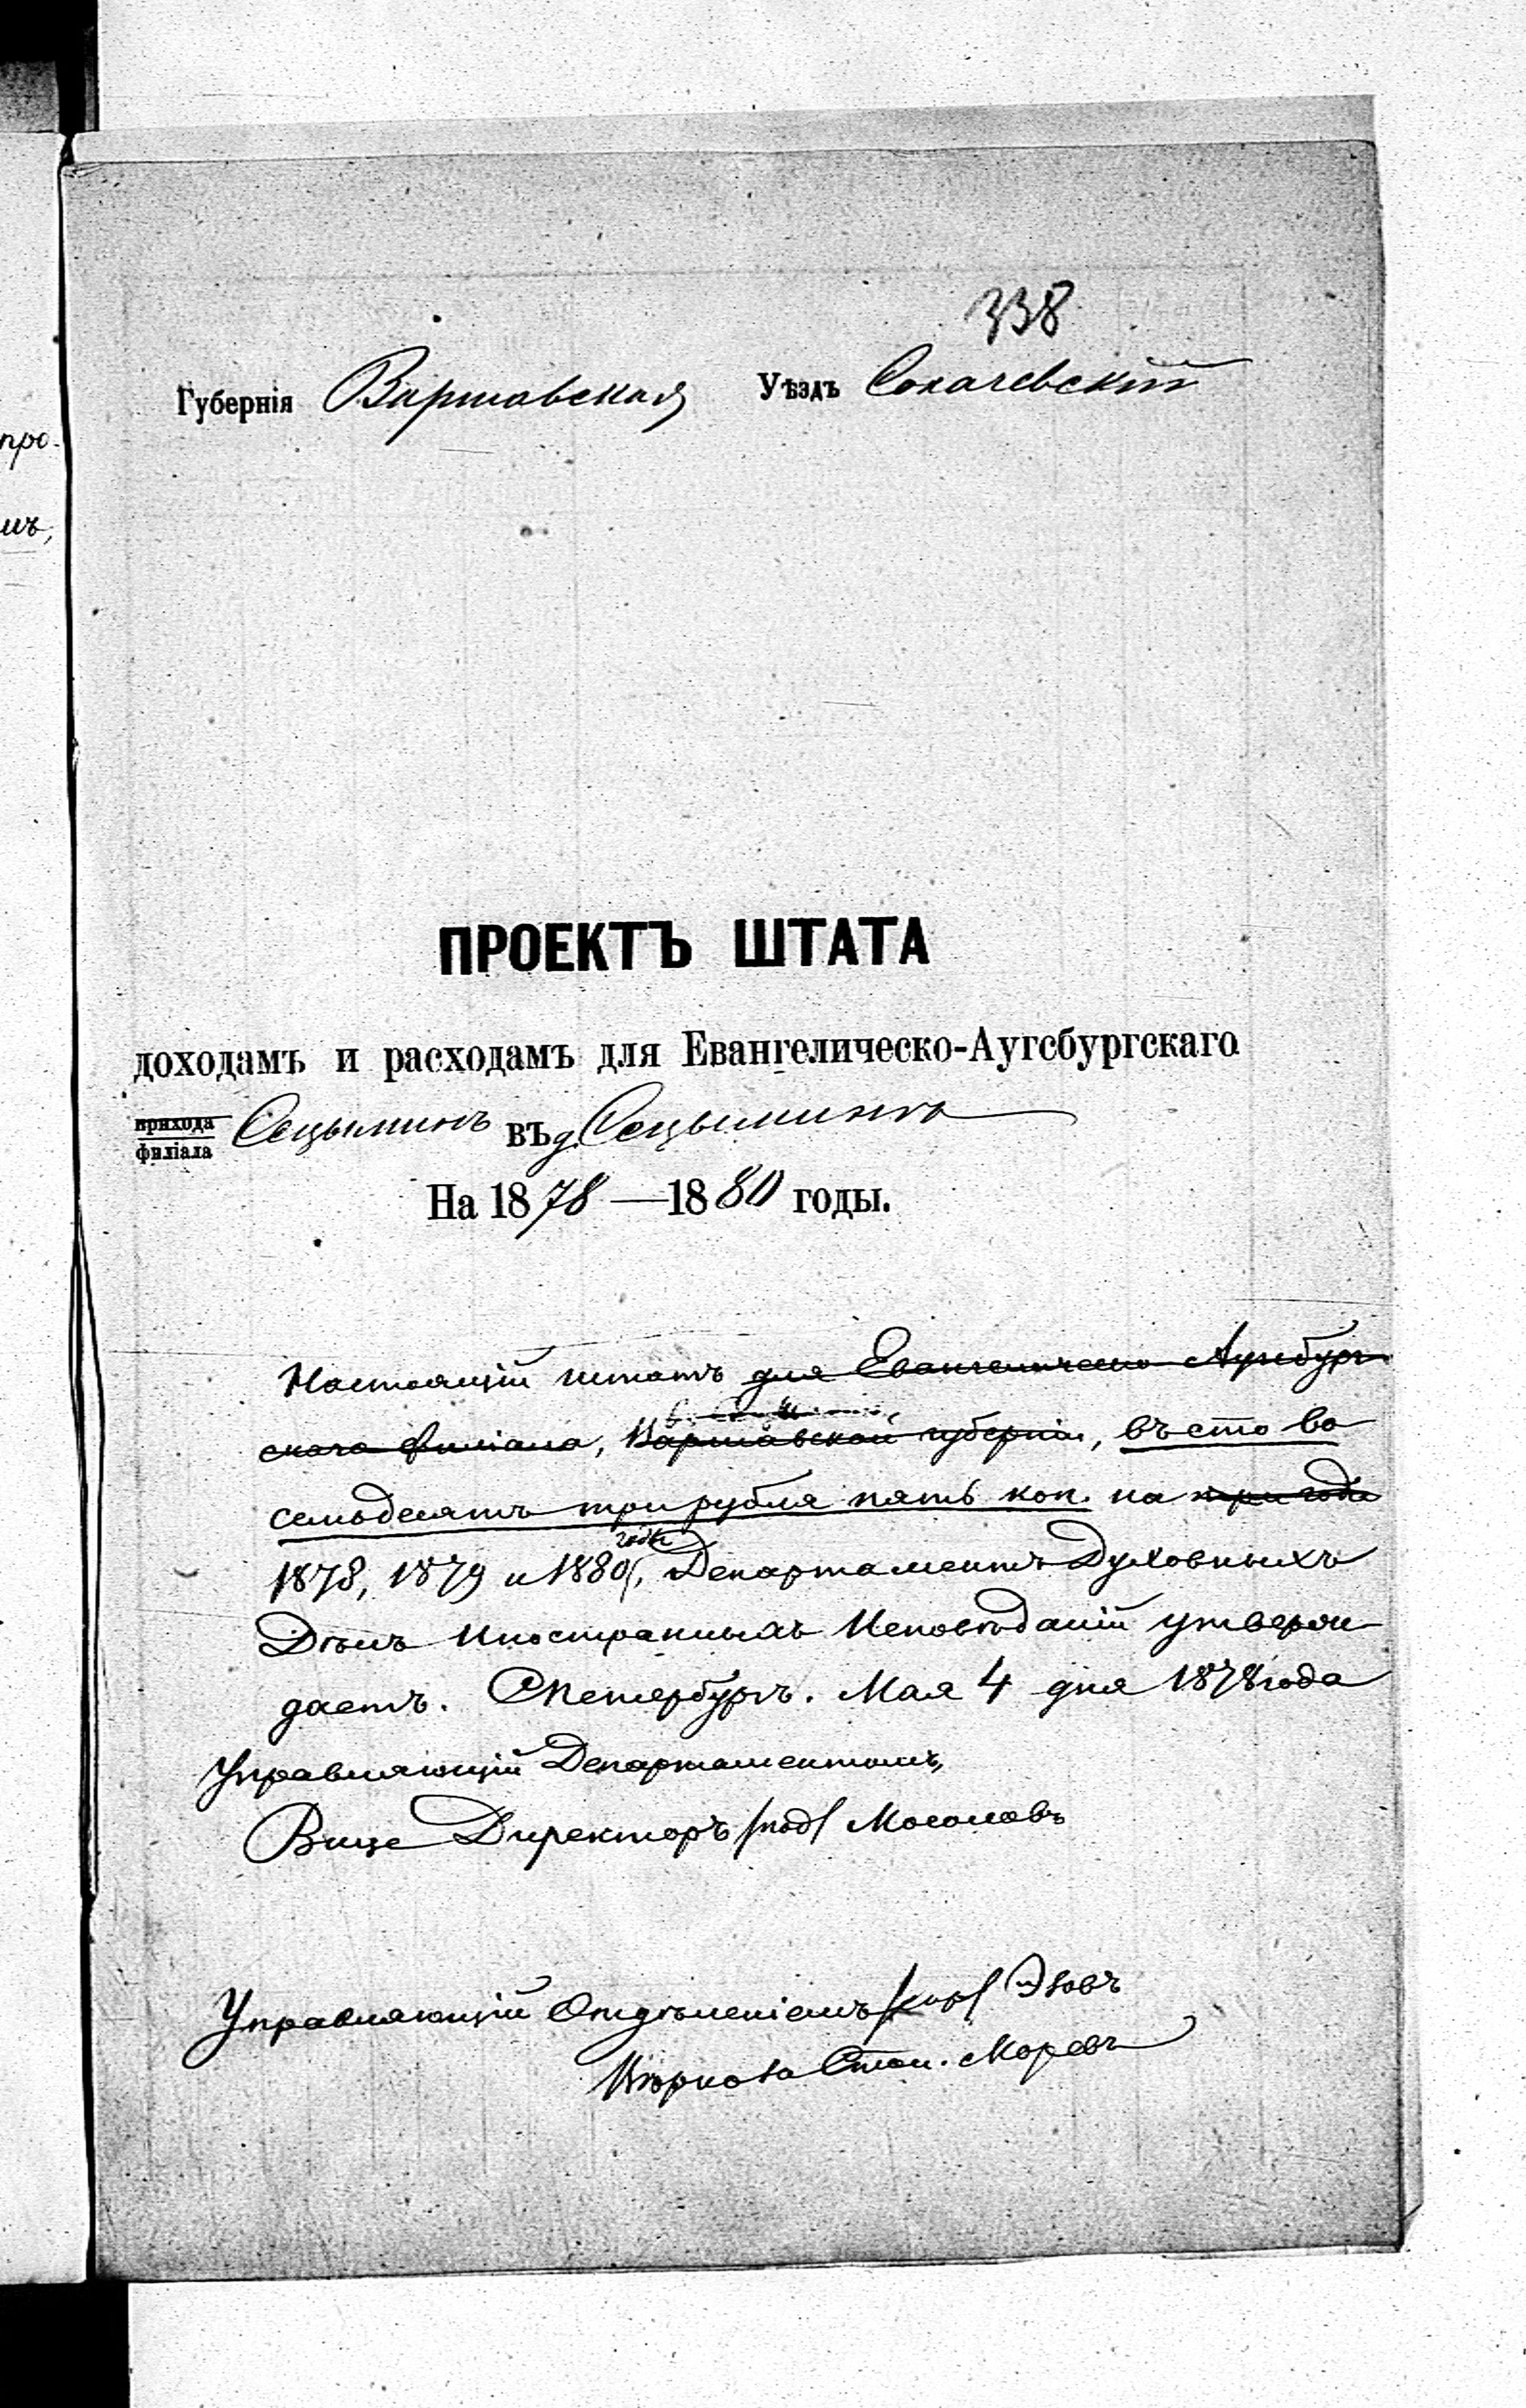 338
Губернія Варшавская Уѣздъ Сохачевскій
про-
мъ,
ПРОЕКТЪ ШТАТА
доходамъ и расходамъ для Евангелическо-Аугсбургскаго
прихода
филіала Сецыминъ въ д. Сецыминѣ
На 1878—1880 годы.
Настоящій штатъ для Евангелическо Аугсбург
скаго филіала, Варшавской губерніи, въ сто во
семьдесятъ три рубля пять коп. на три года
года
1878, 1879 и 1880, Департаментъ Духовныхъ
Дѣлъ Иностранныхъ Исповѣданій утверж
даетъ. СПетербургъ. Мая 4 дня 1878 года
Управляющій Департаментомъ,
Вице Директоръ /под/ Мосоловъ
Управляющій Отдѣленіемъ /скр/ Эзовъ
Вѣрно: За Стол. Моревъ